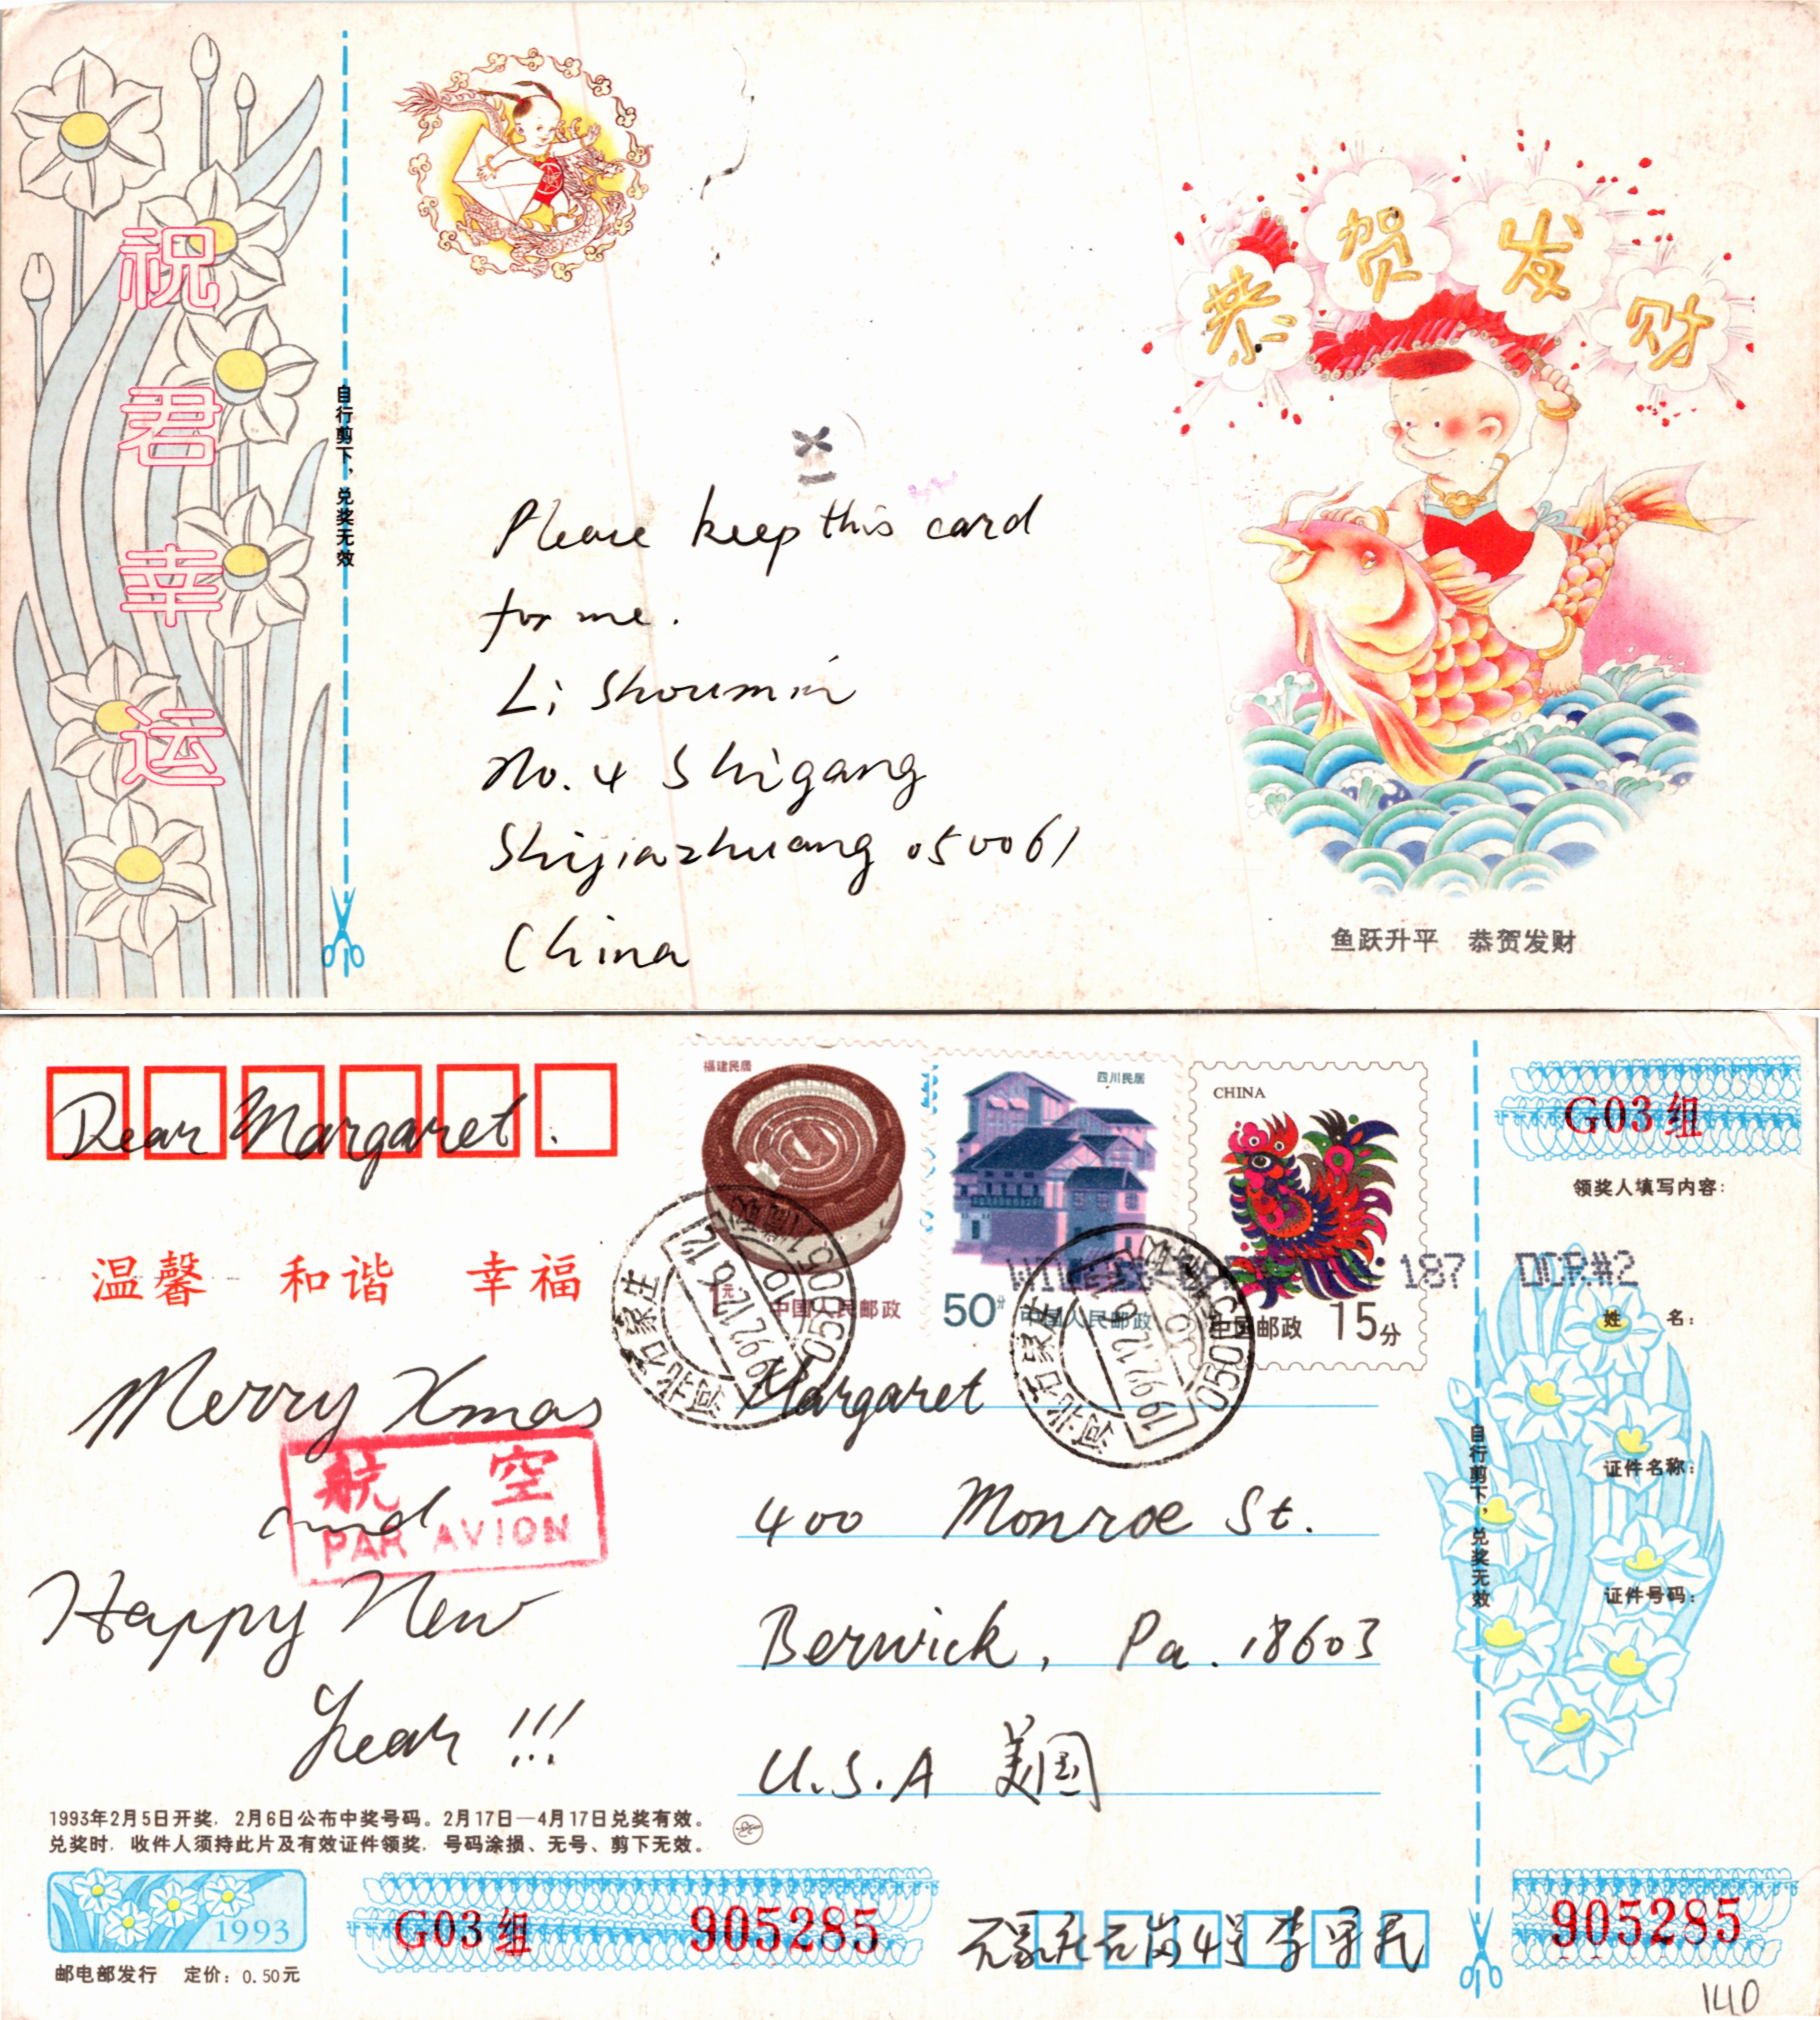 祝君幸运
自行剪下，兑奖无效
恭贺发财
Please keep this card
for me.
Li Shoumin
No. 4 Shigang
Shijiazhuang 050061
China
鱼跃升平 恭贺发财
Dear Margaret.
温馨 和谐 幸福
Merry Xmas
and
Happy New
Year !!!
航空
PAR AVION
福建民居
1元 中国人民邮政
四川民居
50分 中国人民邮政
CHINA
中国邮政 15分
187 DCR#2
河北石家庄
1992.12.19
河北石家庄
1992.12.19
Margaret
400 Monroe St.
Berwick, Pa. 18603
U.S.A 美国
G03组
领奖人填写内容：
姓 名：
证件名称：
证件号码：
自行剪下，兑奖无效
1993年2月5日开奖，2月6日公布中奖号码。2月17日—4月17日兑奖有效。
兑奖时，收件人须持此片及有效证件领奖，号码涂损、无号、剪下无效。
1993
邮电部发行 定价：0.50元
G03组 905285
石家庄石岗4号李守民
905285
140